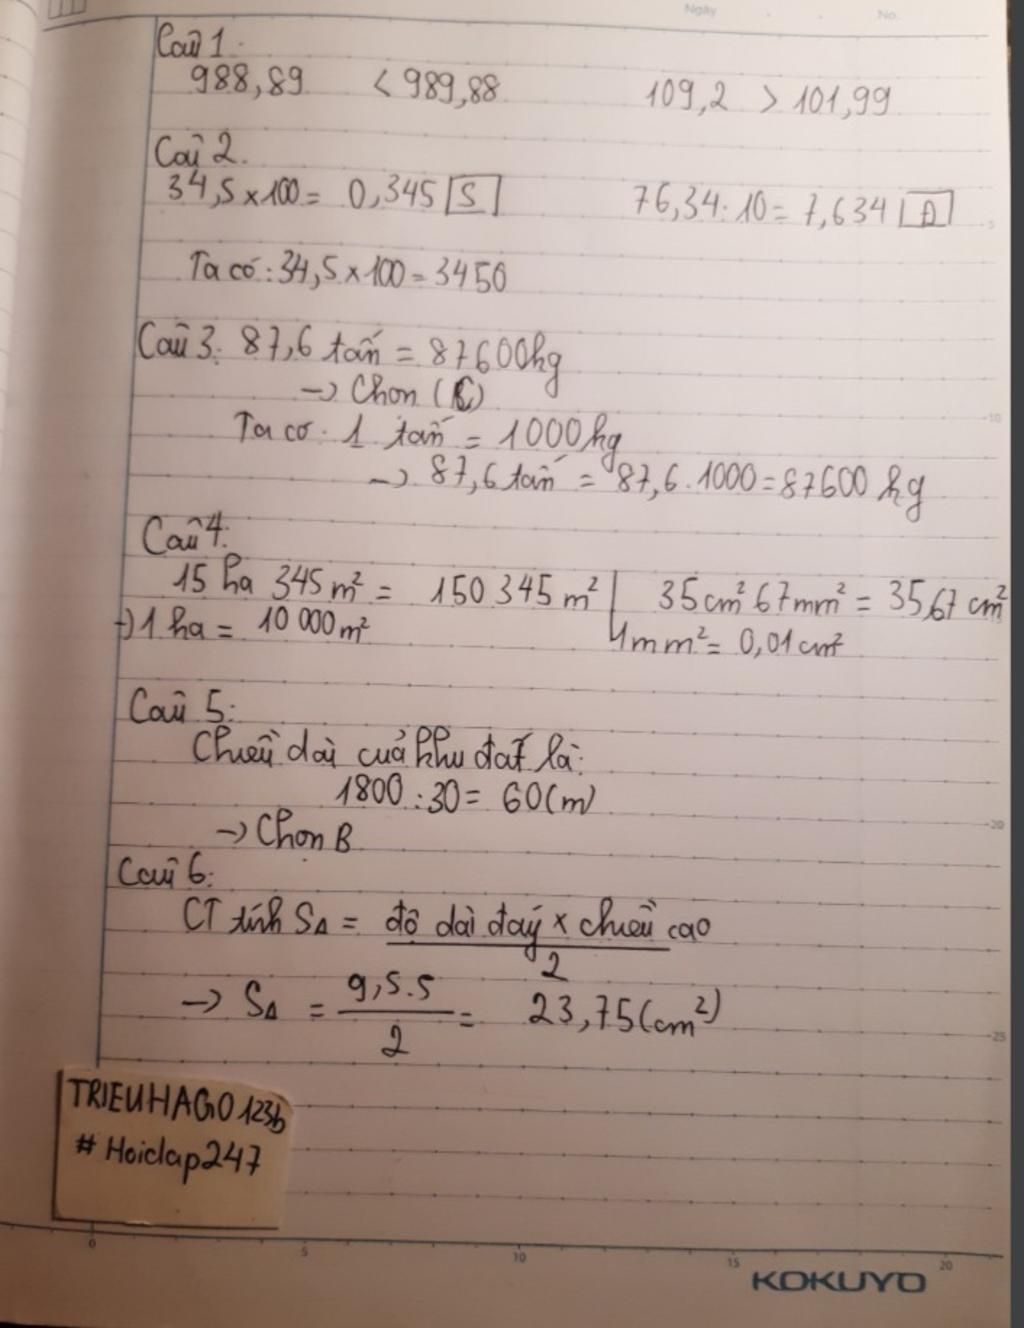 Ngày No.
Câu 1.
988,89 < 989,88 109,2 > 101,99
Câu 2.
34,5 x 100 = 0,345 S 76,34 : 10 = 7,634 Đ
Ta có : 34,5 x 100 = 3450
Câu 3. 87,6 tấn = 87600kg
→ Chọn (C)
Ta có : 1 tấn = 1000kg
→ 87,6 tấn = 87,6 . 1000 = 87600 kg
Câu 4.
15 ha 345 m² = 150 345 m² 35cm² 67mm² = 35,67 cm²
→ 1 ha = 10 000 m² 1mm² = 0,01 cm²
Câu 5:
Chiều dài cuả khu đất là:
1800 : 30 = 60(m)
→ Chọn B
Câu 6:
CT tính S∆ = độ dài đáy x chiều cao
2
→ S∆ = 9,5.5 = 23,75(cm²)
2
TRIEUHAGO123b
# Hoidap247
0 5 10 15 20
KOKUYO